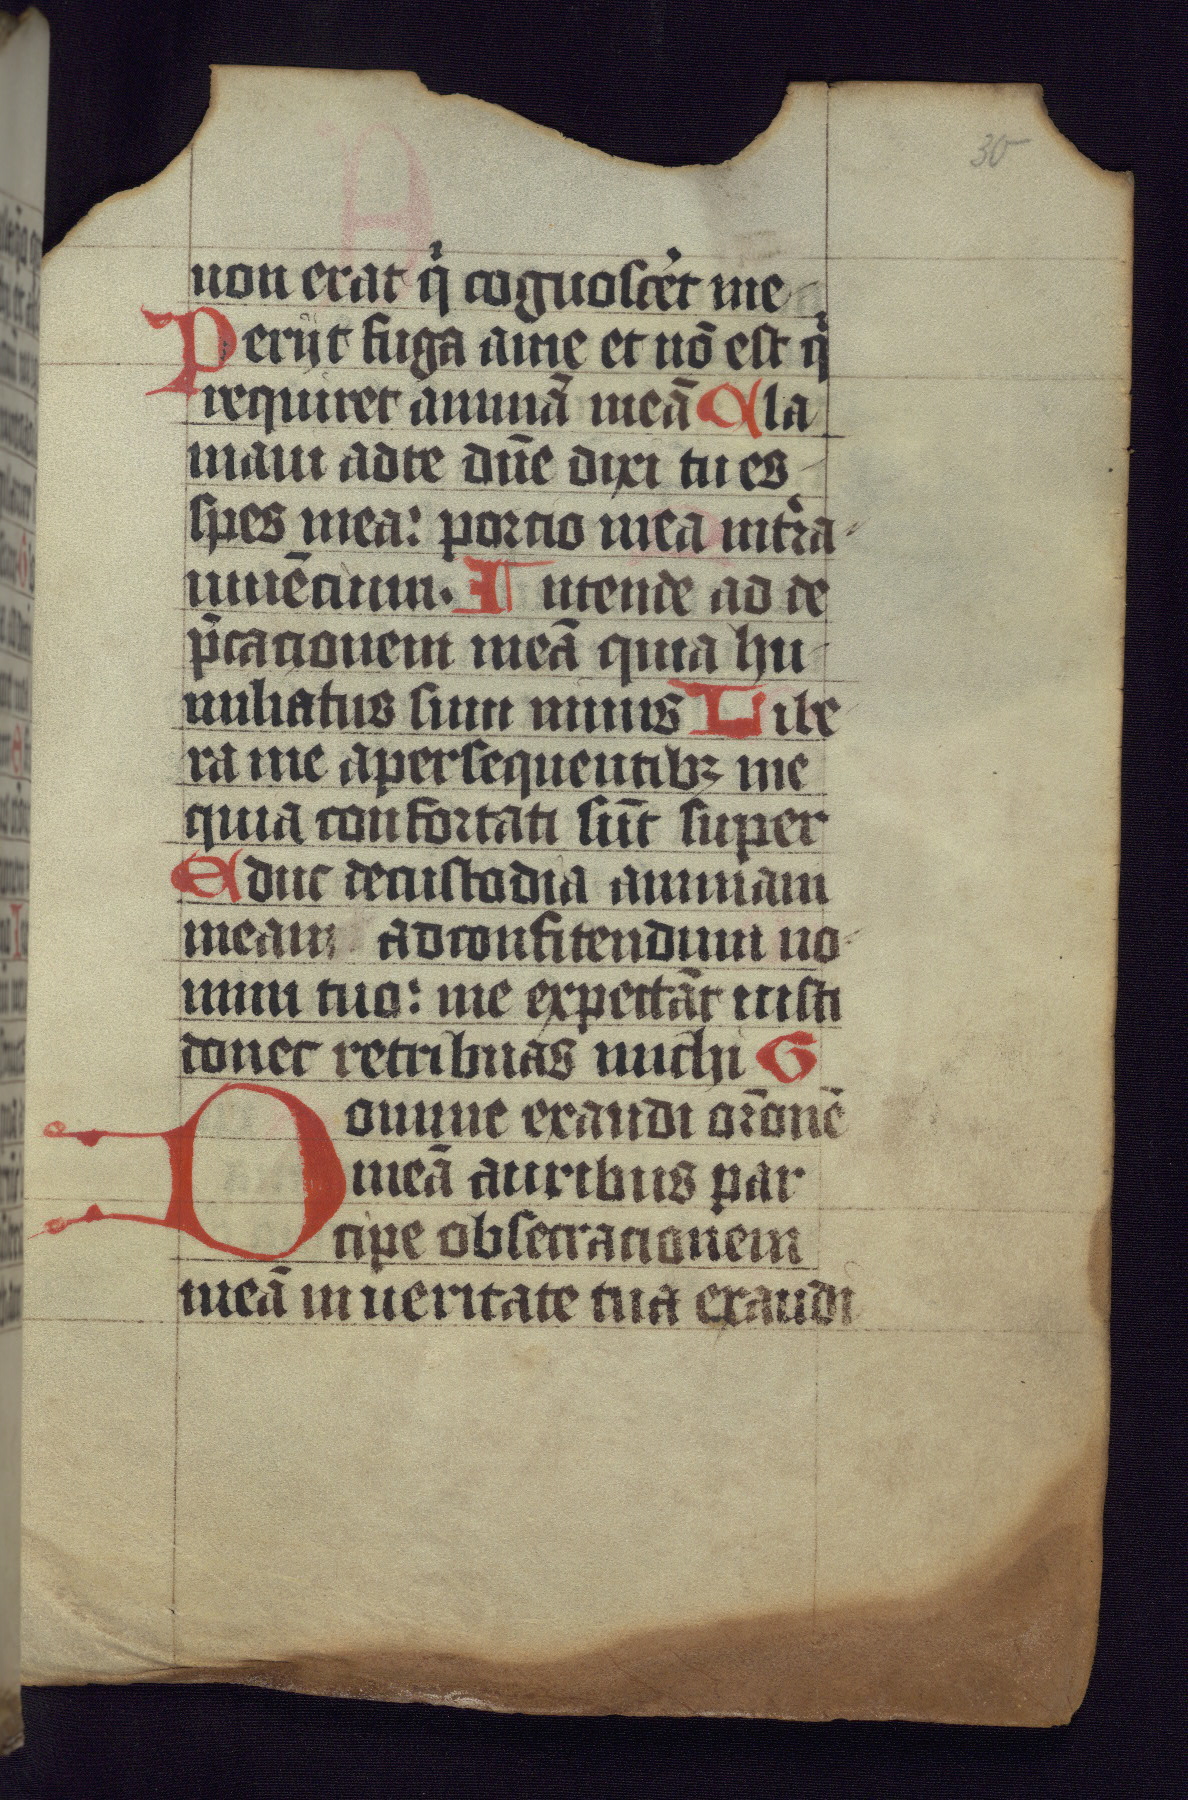 30
non erat qͥ cognosce̛t me
Perijt fuga a me et nō est qͥ
requiret animā meā Cla
maui ad te dn̄e dixi tu es
spes mea: porcio mea in tr̛a
uiuēcium. Intende ad de
p̄cacionem meā quia hu
miliatus sum nimis Libe
ra me a persequentibꝫ me
quia confortati sūt super
Educ de custodia animam
meam ad confitendum no
mini tuo: me expectāt iusti
donec retribuas michi G
Domine exaudi or̄onē
meā auribus par
cipe obsecracionem
meā in ueritate tua exaudi